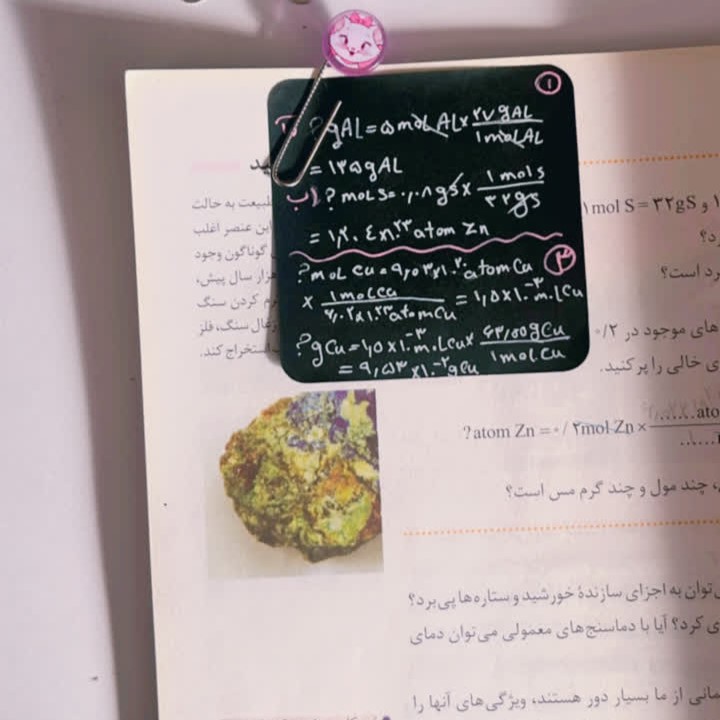 ①
? gAL = ۵ molAL × ۲۷ gAL / 1 molAL
= ۱۳۵ gAL
ب) ? molS = ۰,۰۸ gS × 1 mol S / ۳۲gS
= ۱,۲۰۴×۱۰^۲۳ atom Zn
? moL cu = ۹,۰۳×۱۰^۲۰ atom Cu
× 1molcu / ۶,۰۲×۱۰^۲۳ atomCu = ۱,۵×۱۰^-۳ moLCu
? gCu = ۱,۵×۱۰^-۳ moLCu × ۶۳,۵۵gCu / 1moLCu
= ۹,۵۳×۱۰^-۲ gCu
طبیعت به حالت
این عنصر اغلب
گوناگون وجود
هزار سال پیش،
گرم کردن سنگ
زغال سنگ، فلز
استخراج کند.
1 mol S = ۳۲gS و
رد؟
رد است؟
های موجود در ۰/۲
ی خالی را پر کنید.
? atom Zn = ۰/۲mol Zn × ......ato / ......
، چند مول و چند گرم مس است؟
توان به اجزای سازندهٔ خورشید و ستاره‌ها پی برد؟
ی کرد؟ آیا با دماسنج‌های معمولی می‌توان دمای
مانی از ما بسیار دور هستند، ویژگی‌های آنها را